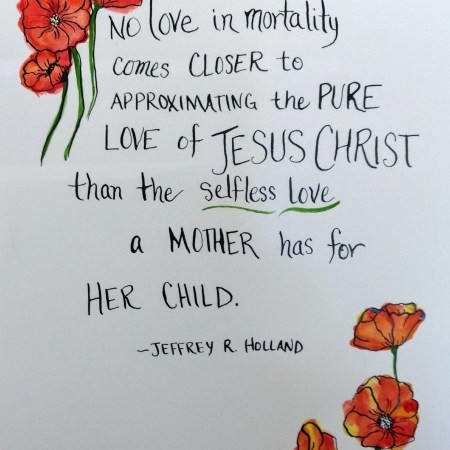 NO love in mortality
comes CLOSER to
APPROXIMATING the PURE
LOVE of JESUS CHRIST
than the selfless love
a MOTHER has for
HER CHILD.
-JEFFREY R. HOLLAND